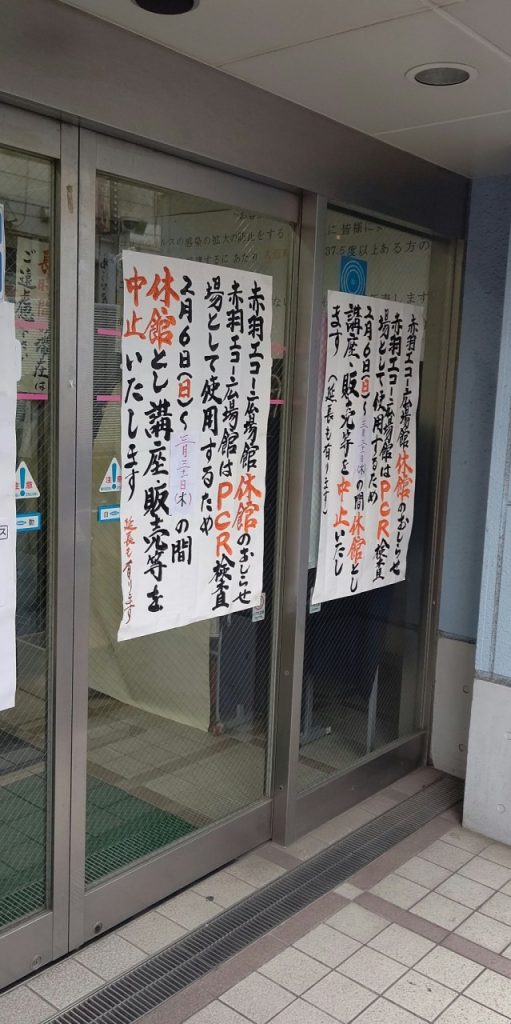 赤羽エコー広場館休館のおしらせ
赤羽エコー広場館はPCR検査
場として使用するため
2月6日(日)~三月三十一日(木)の間
休館とし講座・販売等を
中止いたします
延長も有ります
赤羽エコー広場館休館のおしらせ
赤羽エコー広場館はPCR検査
場として使用するため
2月6日(日)~三月三十一日(木)の間休館とし
講座・販売等を中止いたし
ます(延長も有ります)
ルスの感染の拡大の防止をする
に皆様に
37.5度以上ある方の
ご遠慮
注意
自動
注意